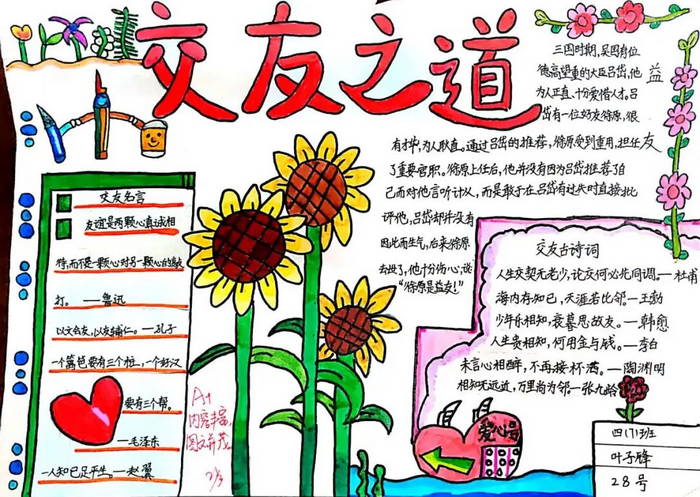 交友之道
三国时期,吴国有位
德高望重的大臣吕岱,他
为人正直,十分爱惜人才。吕
岱有一位好友徐原,很
有才华,为人耿直。通过吕岱的推荐,徐原受到重用,担任
了重要官职。徐原上任后,他并没有因为吕岱推荐了自
己而对他言听计从,而是敢于在吕岱有过失时直接批
评他,吕岱却并没有
因此而生气,后来徐原
去世了,他十分伤心,说:
“徐原是益友!”
益
友
交友名言
友谊是两颗心真诚相
待,而不是一颗心对另一颗心的敲
打。——鲁迅
以文会友,以友辅仁。—孔子
一个篱笆要有三个桩,一个好汉
要有三个帮。
—毛泽东
一人知己足平生。—赵翼
A+
内容丰富,
图文并茂。
交友古诗词
人生交契无老少,论交何必先同调。—杜甫
海内存知己,天涯若比邻。—王勃
少年乐相知,衰暮思故友。—韩愈
人生贵相知,何用金与钱。—李白
未言心相醉,不再接杯酒。—陶渊明
相知无远近,万里尚为邻。—张九龄
爱心号
四(7)班
叶子臻
28号